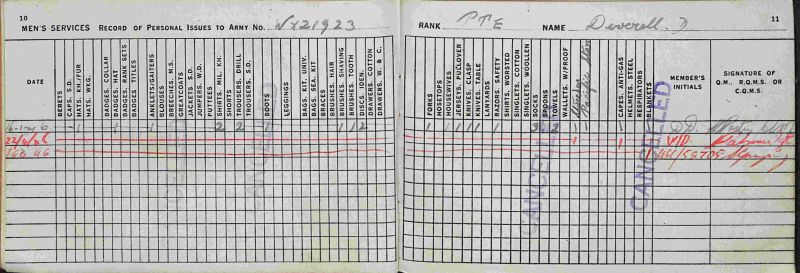 10
MEN'S SERVICES RECORD OF PERSONAL ISSUES TO ARMY NO. NX21923
DATE
BERETS
CAPS, S.D.
HATS, KH./FUR
HATS, WKG.
BADGES, COLLAR
BADGES, HAT
BADGES, RANK SETS
BADGES TITLES
ANKLETS/GAITERS
BLOUSES
BREECHES, M.S.
GREATCOATS
JACKETS S.D.
JUMPERS, W.D.
PUTTEES
SHIRTS, MIL. KH.
SHORTS
TROUSERS, DRILL
TROUSERS, S.D.
BOOTS
LEGGINGS
BAGS, KIT, UNIV.
BAGS, SEA, KIT
BRACES
BRUSHES, HAIR
BRUSHES, SHAVING
BRUSHES, TOOTH
DISCS, IDEN.
DRAWERS, COTTON
DRAWERS, W. & C.
1 1 1 2 2 2 1 1 2
CANCELLED
CANCELLED
RANK PTE NAME Deverell. D
11
FORKS
HOSETOPS
HOUSEWIVES
JERSEYS, PULLOVER
KNIVES, CLASP
KNIVES, TABLE
LANYARDS
RAZORS, SAFETY
SHIRTS, WORSTED
SINGLETS, COTTON
SINGLETS, WOOLLEN
SOCKS
SPOONS
TOWELS
WALLETS, W/PROOF
Pacific Star
CAPES, ANTI-GAS
HELMETS, STEEL
RESPIRATORS
BLANKETS
MEMBER'S INITIALS
SIGNATURE OF Q.M., R.Q.M.S. OR C.Q.M.S.
1 1 1 1 1 1 3 2 D.D.
1 1 D.
CANCELLED
CANCELLED